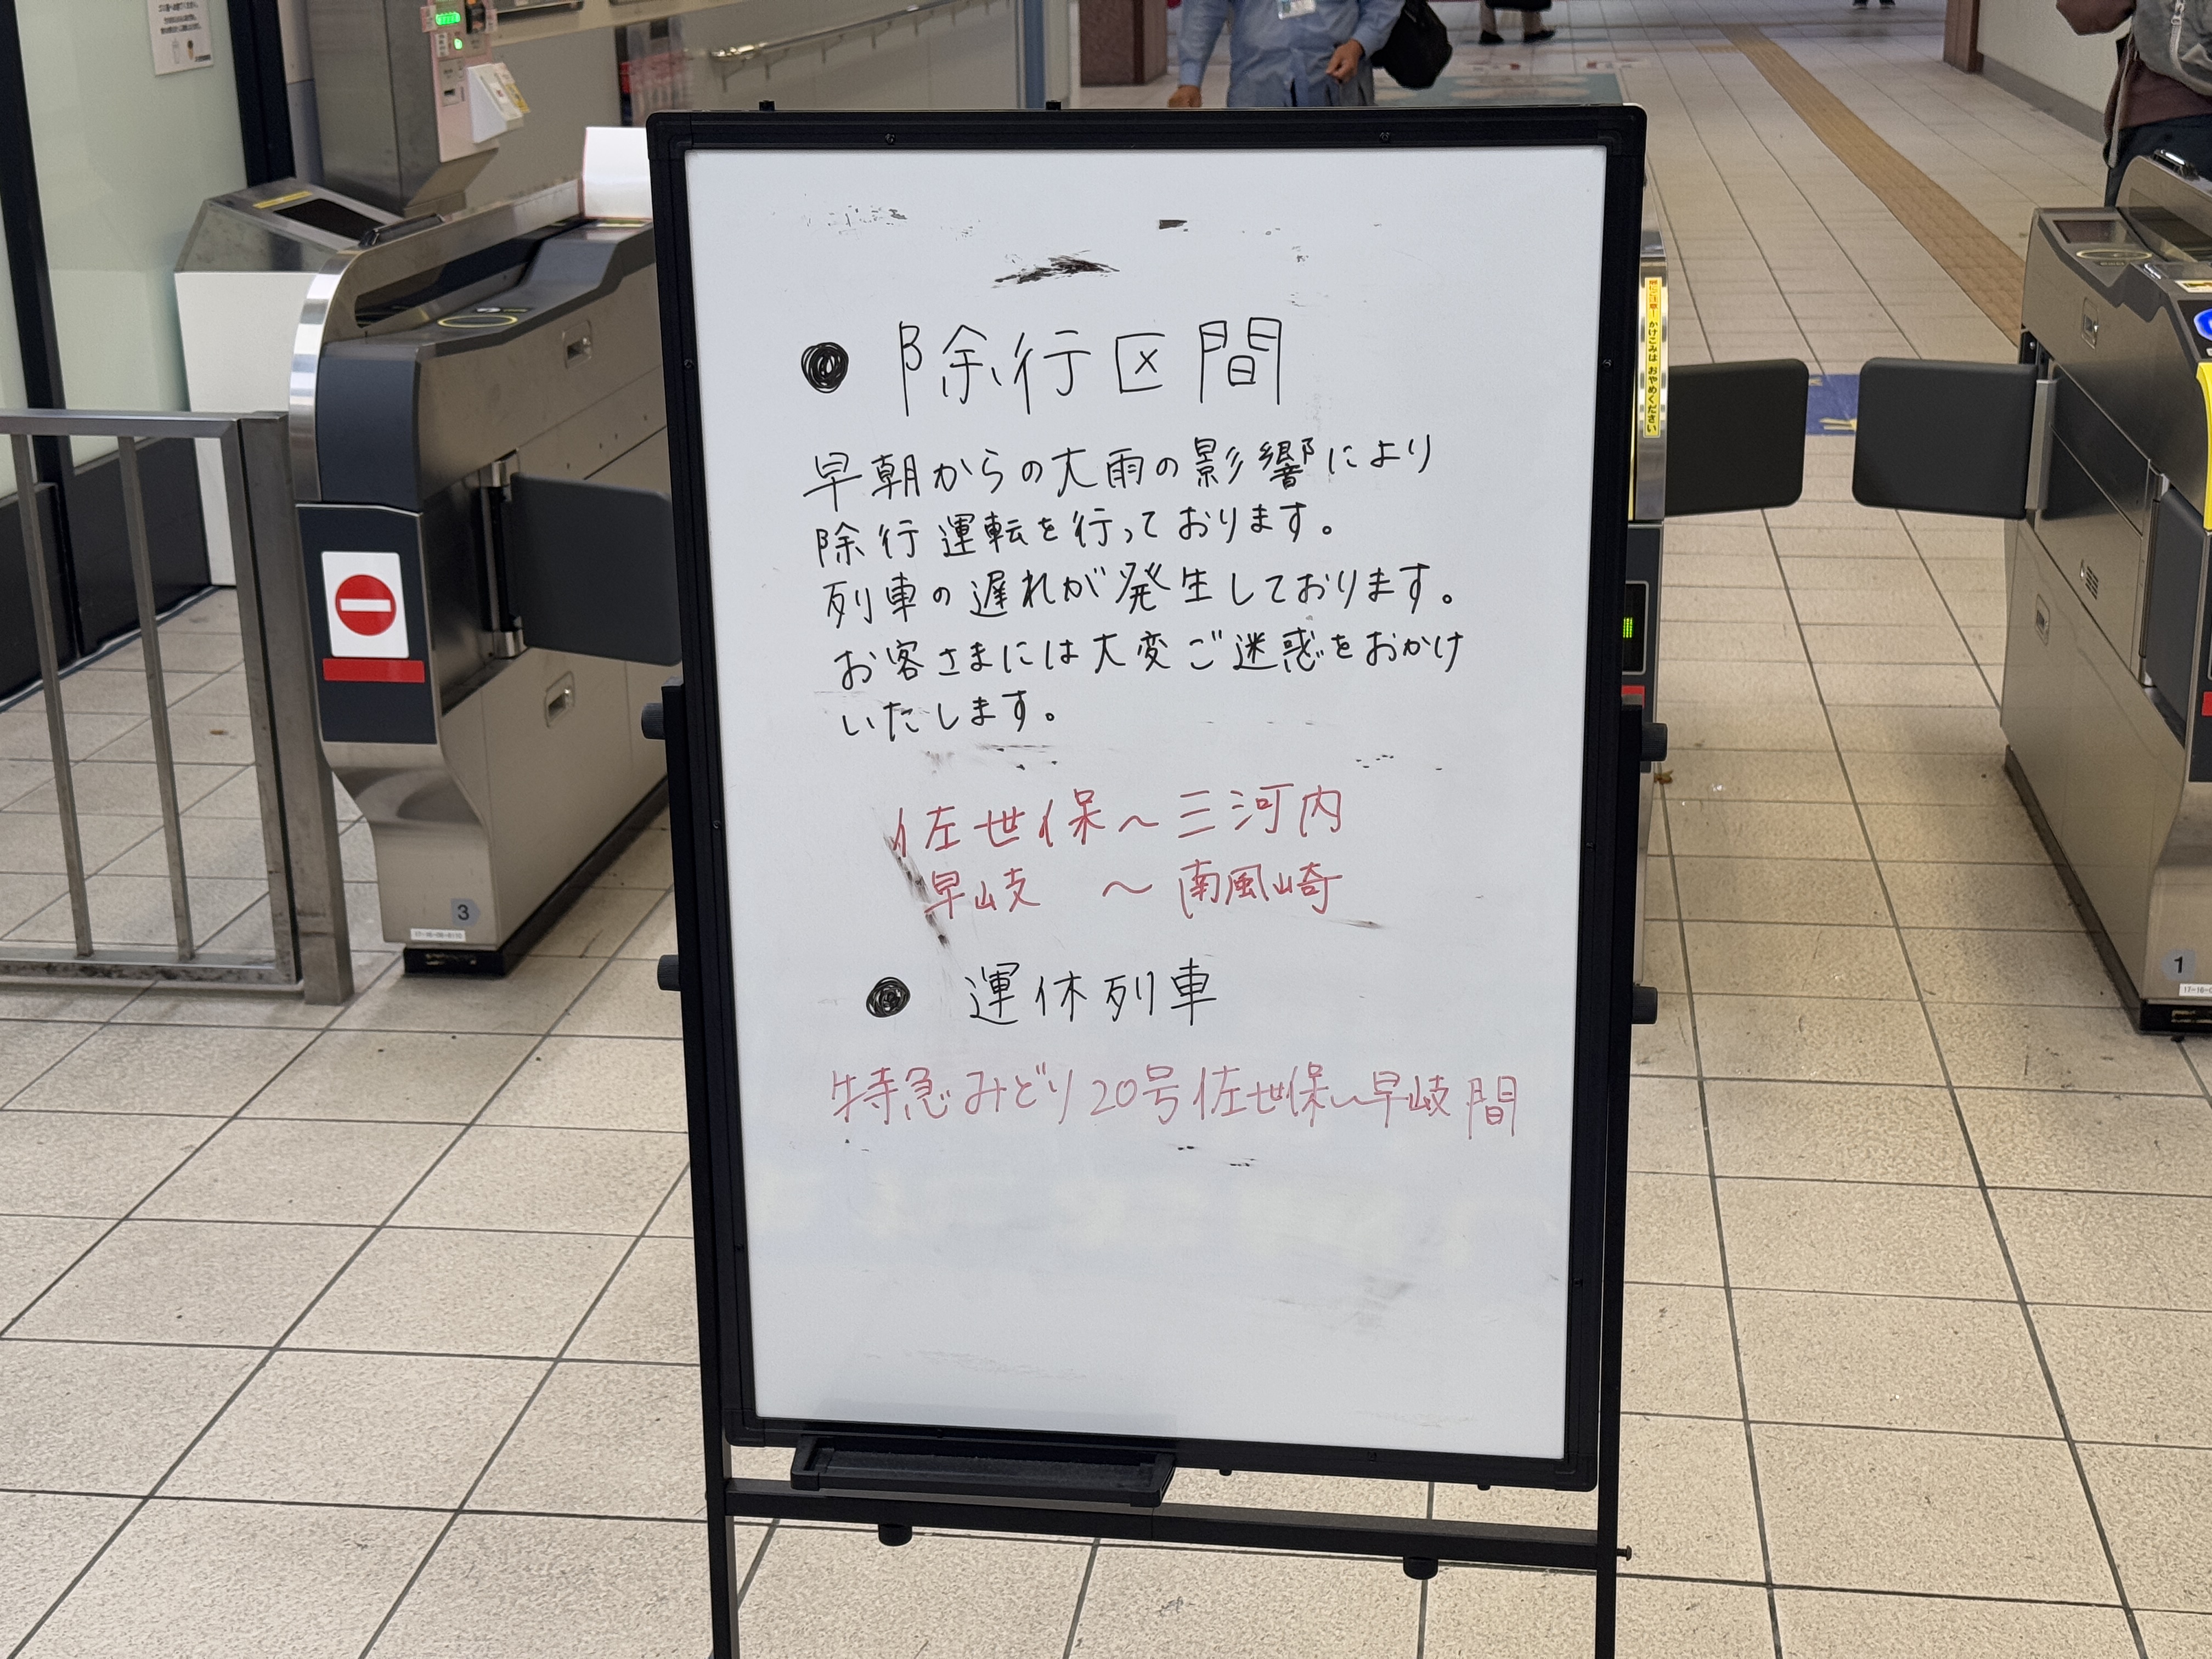 ● 除行区間
早朝からの大雨の影響により
除行運転を行っております。
列車の遅れが発生しております。
お客さまには大変ご迷惑をおかけ
いたします。
佐世保〜三河内
早岐 〜 南風崎
● 運休列車
特急みどり20号佐世保〜早岐間
かけこみはおやめください
3
1